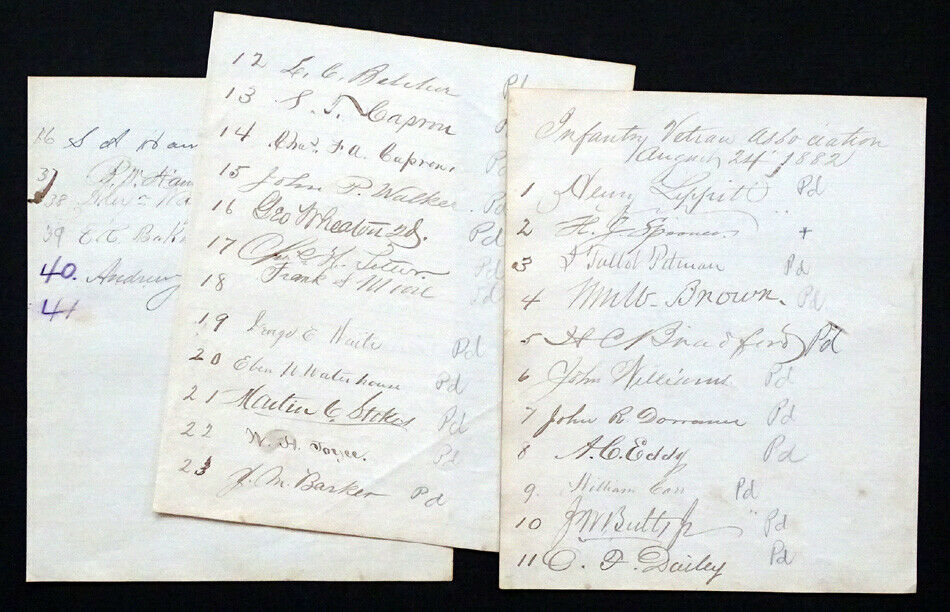 Infantry Vetran Association
August 24, 1882
1 Henry Lippitt Pd
2 H. J. Spooner +
3 J Talbot Pitman Pd
4 Wm W. Brown. Pd
5 H C Bradford Pd
6 John Williams Pd
7 John R Dorrance Pd
8 A. C. Eddy Pd
9. William Carr Pd
10 J W Butts Jr Pd
11 O. F. Dailey Pd
12 L. C. Belcher Pd
13 S. T. Capron
14 Chas. F. A. Capron, Pd
15 John P. Walker. Pd
16 Geo Wheaton 2d. Pd
17 Pd
18 Frank S Pd
19 E Waite Pd
20 Eben N Waterhouse Pd
21 Martin C Stokes Pd
22 W. H. Joyce. Pd
23 J. M. Barker Pd
36 S A
37
38
39
40. Andrew
41